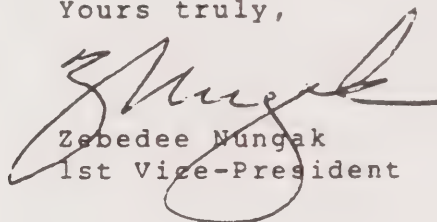 Yours truly,
Z Nungak
Zebedee Nungak
1st Vice-President